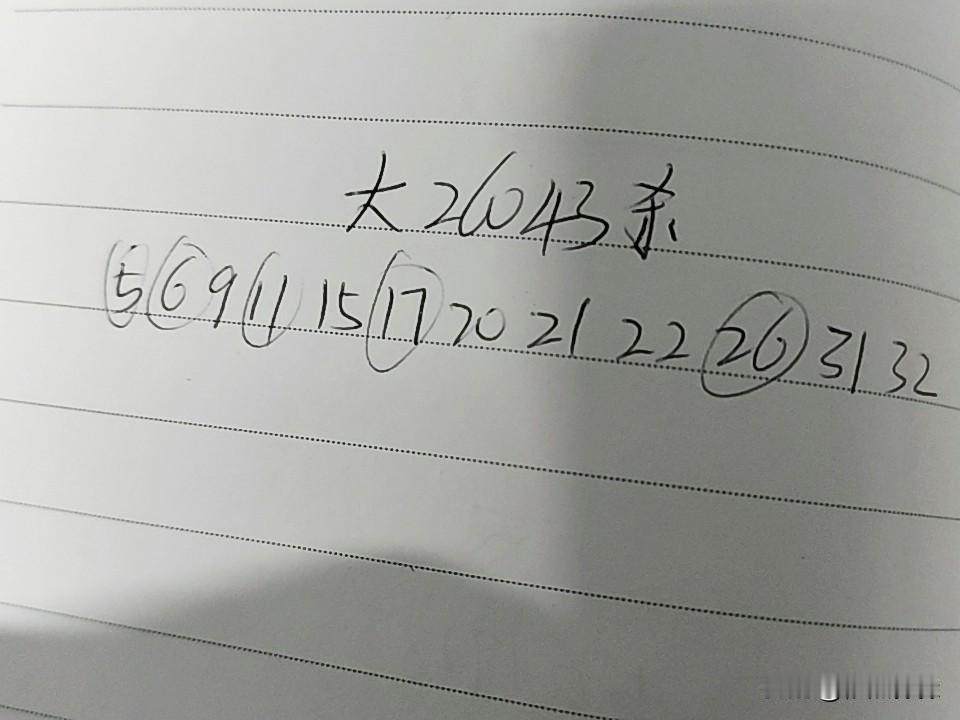 大26043杀
5 6 9 11 15 17 20 21 22 26 31 32